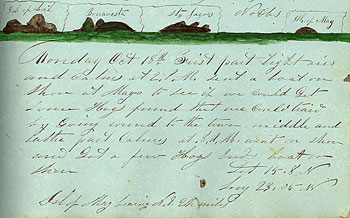 Isle of Sal Bonavista St Jagos N by Es Isle of May
Monday Oct 18th First part Light airs
and Calms at 2 P.M. sent a boat on
shore at Mayo to see if we could Get
some Hogs found that we could traid
by Going round to the town middle and
latter part Calms at 7 A.M. went on shore
and Got a few Hogs boat on
shore Lat 15.8 N
Long 23.05 W
Isl of May bearing N.E. miles